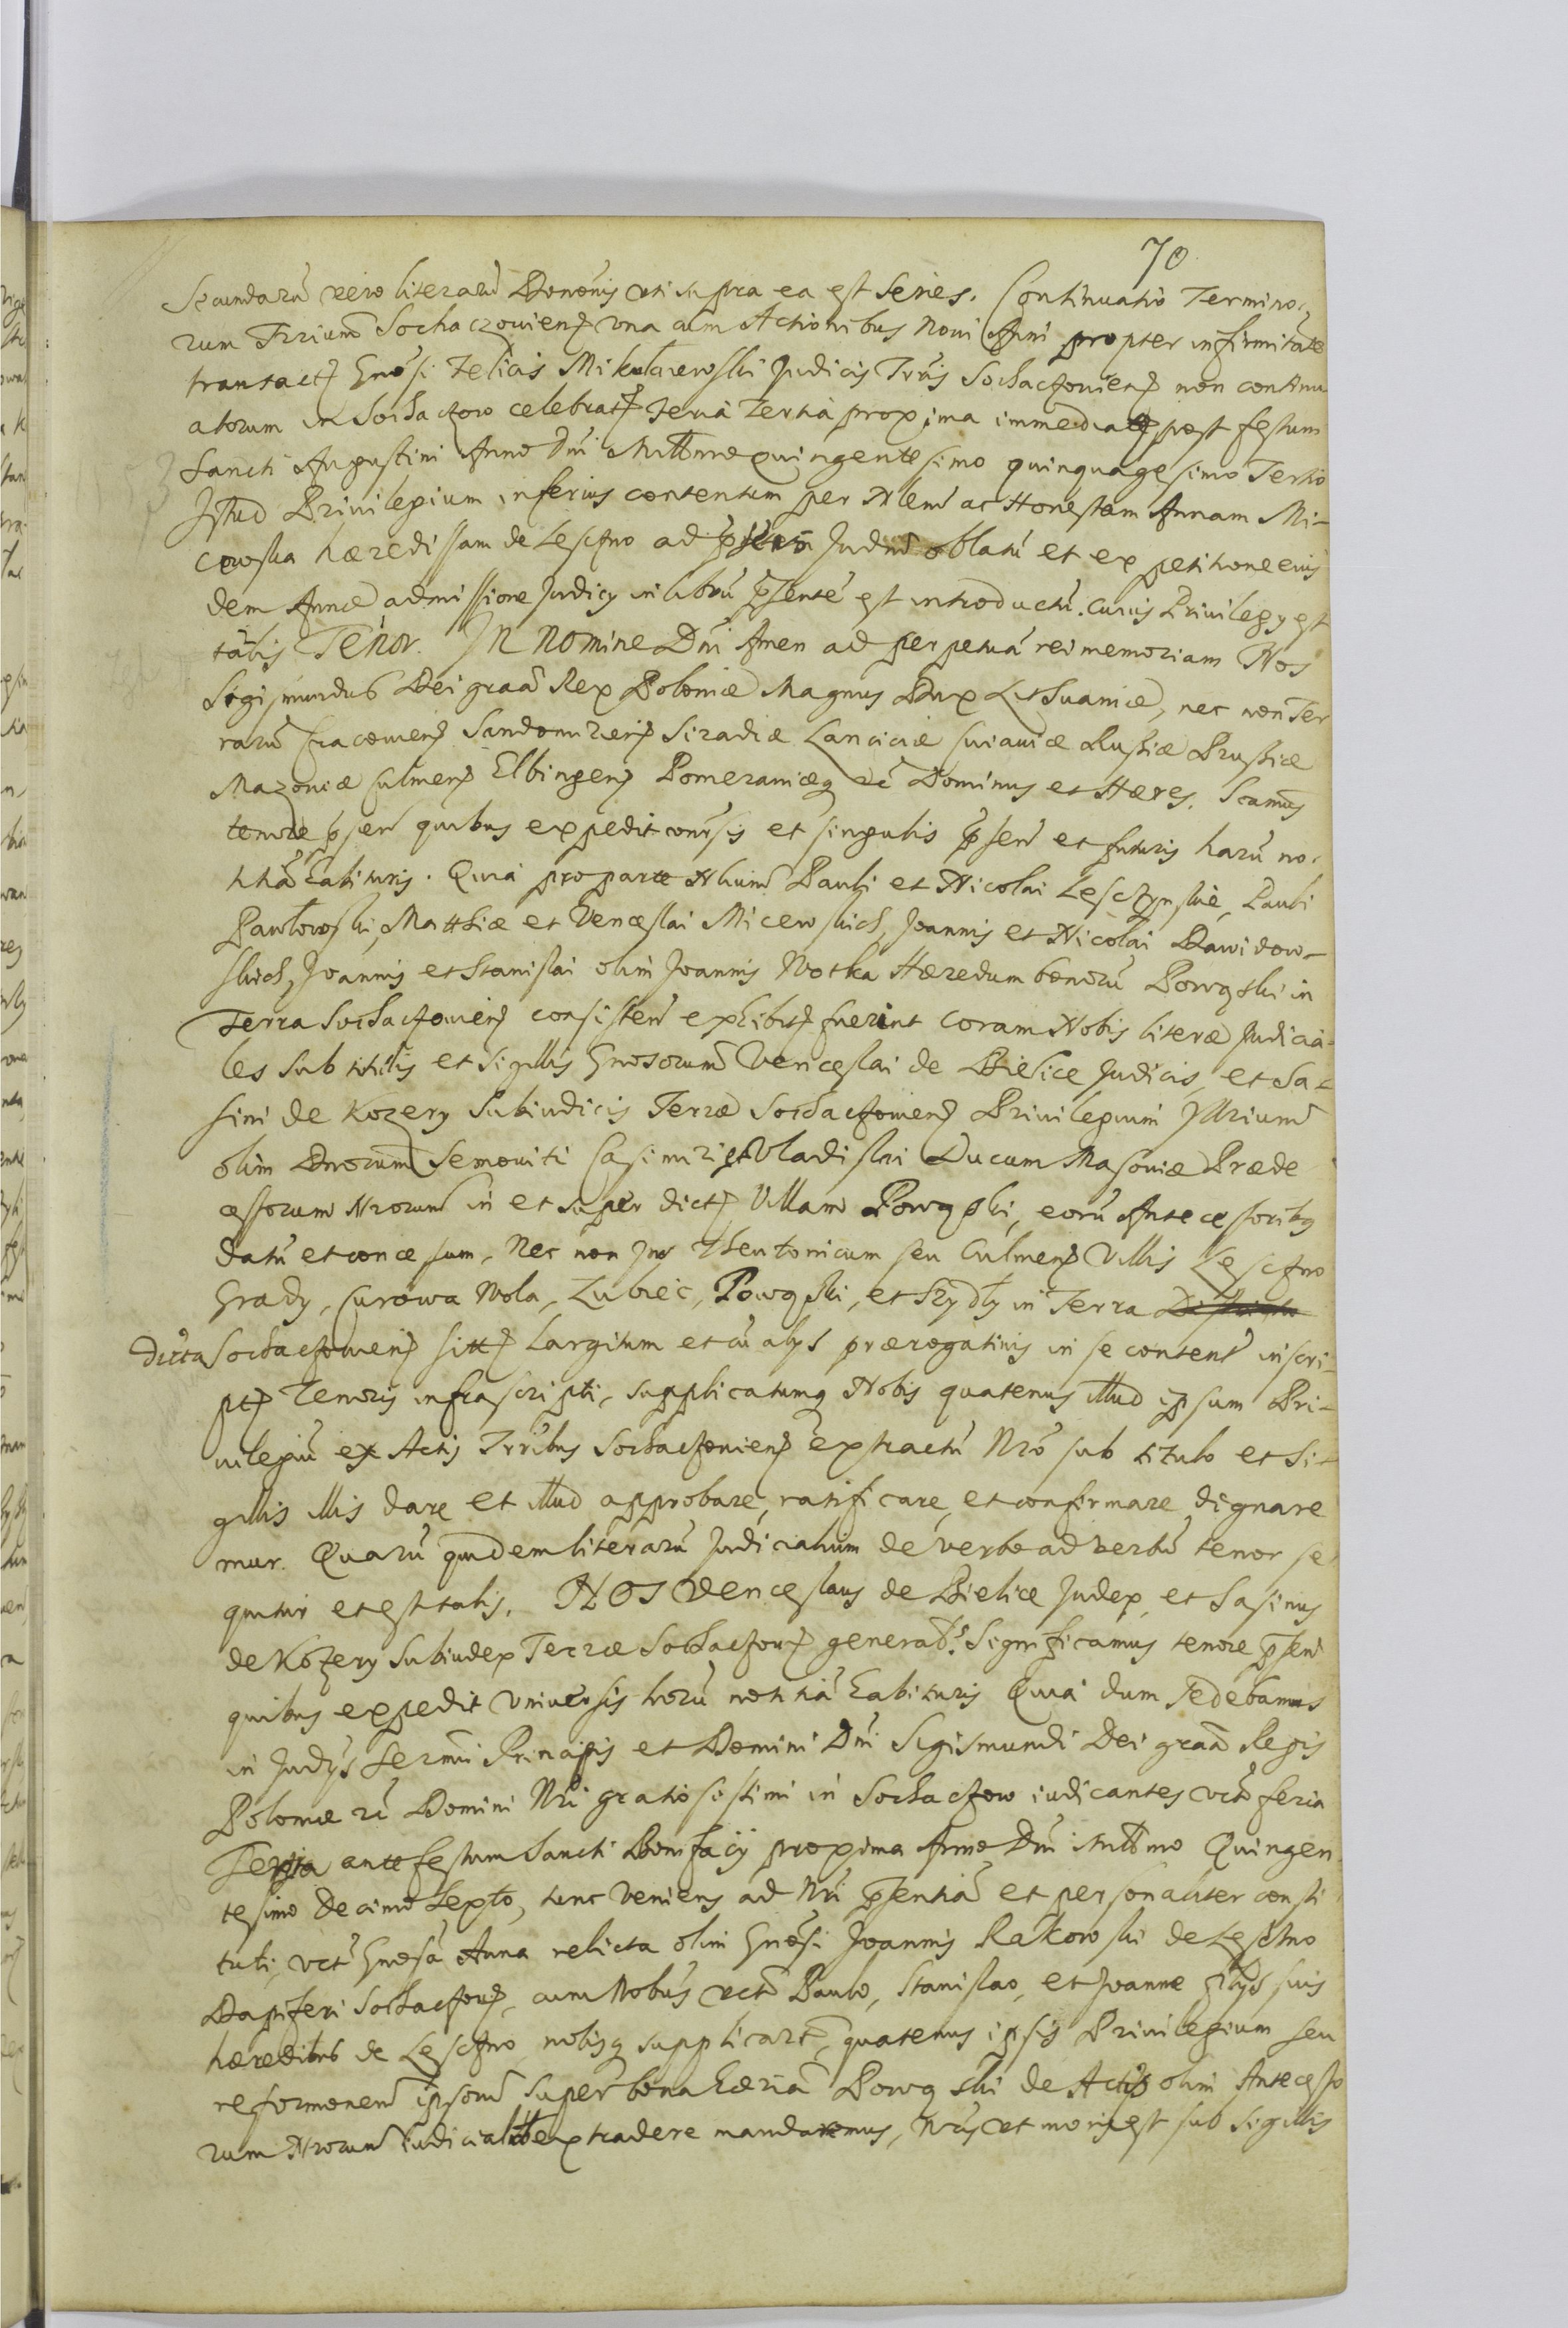 70
Secundarũ vero literarũ Donõnis uti supra ea est series. Continuatio Termino,
rum Trrium Sochaczovien) una cum Actionibus Novi Anni propter infirmitatẽ
transact) Gnõsi Felicis Mikułaiewski Judicis Trris Sochaczovien) non continu
atorum in Sochaczow celebrat) feria Tertia proxima immediate post festum
Sancti Augustini Anno Dni Millmo quingentesimo quinquagesimo Tertio
Istud Privilegium inferius contentum per Nlem ac Honestam Annam Mi-
cowska hæredissam de Lesczno ad Judm oblatũ et ex petitione eius
dem Annæ admissione Judicy in librũ psentẽ est introductũ. Cuius Privilegy est
talis Tenor. IN Nomine Dni Amen ad perpetuã rei memoriam Nos
Sigismundus Dei graa Rex Poloniæ Magnus Dux Lithuaniæ, nec non Ter
rarũ Cracovien) Sandomirien) Siradiæ Lanciciæ Cuiaviæ Russiæ Prussiæ
Mazoviæ Culmen) Elbingen) Pomeraniæq rc Dominus et Hæres. Scimus
tenore psen quibus expedit unvrsis et singulis psen et futuris harũ no,
titiã habituris. Quia pro parte Nlium Pauli et Nicolai Lesczynskie, Pauli
Pawłowski, Matthiæ et Venceslai Micewskich, Joannis et Nicolai Dawidow-
skich, Joannis et Stanislai olim Joannis Wotka Hæredum bonorũ Powązki in
Terra Sochaczovien) consisten exhibit) fuerint coram Nobis literæ Judicia-
les sub titulis et sigillis Gnosorum Venceslai de Bielice Judicis, et Sa-
sini de Kozery Subiudicis Terræ Sochaczovien) Privilegium Illrium
olim Dnorum Semoviti Casimiri et Vladislai Ducum Masoviæ Præde
cessorum Nrorum in et super dict) Villam Powązki, eorũ Antecessoribq
datũ et concessum, Nec non Jus Theutonicum seu Culmen) Villis Lesczno
Grady, Curowa Wola, Zubiec, Powązki, et Szydły in Terra Districtu
dicta Sochaczovien) sitt) Largitum et cũ alys prærogativis in se conten inscri-
pt) Tenoris infrascripti, supplicatumq Nobis quatenus illud ipsum Pri-
vilegiũ ex Actis Trribus Sochaczovien) extractũ Nro sub titulo et Si-
gillis illis dare et illud approbare, ratificare, et confirmare dignare
mur. Quarũ quidem literarũ Judicialium de verbo ad verbũ tenor se
quitur et est talis. NOS Venceslaus de Bielice Judex, et Sasinus
de Kozery Subiudex Terræ Sochaczov) general. Significamus tenore psen
quibus expedit universis horũ notitiã habituris Quia dum sedebamus
in Judys Sermi Principis et Domini Dni Sigismundi Dei graa Regis
Poloniæ rc Domini Nri gratiosissimi in Sochaczow iudicantes uctõ feria
Tertia ante festum Sancti Bonifacij proxima Anno Dni Millmo Quingen
tesimo Decimo Septo, tunc veniens ad Nri psentiã et personaliter consti
tuti, uctũ Gnosa Anna relicta olim Gnosi Joannis Rakowski de Lesczno
Dapiferi Sochaczov), cum Nobus uctũ Paulo, Stanislao, et Joanne filys suis
hæredibus de Lesczno, nobisq supplicart, quatenus ipsis Privilegium seu
reformonem ipsorũ super bona hæria Powązki de Actis olim Antecesso
rum Nrorum iudicialit extradere mandaremus, Nris ut moris est sub sigillis